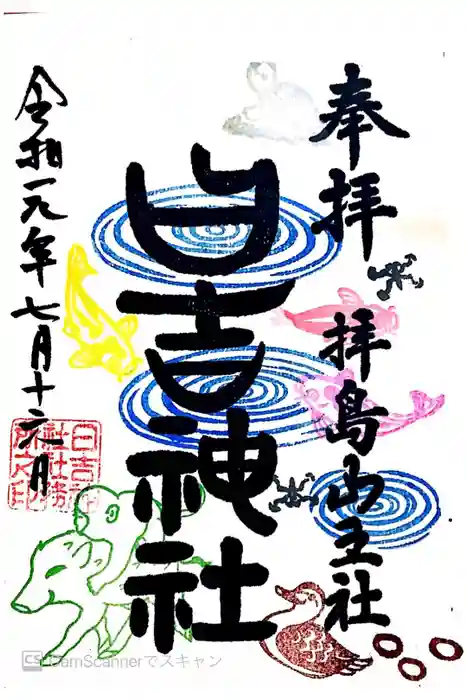 奉拝 拝島山王社
日吉神社
令和元年七月十六日
日吉神
社社務
所之印
CS CamScannerでスキャン